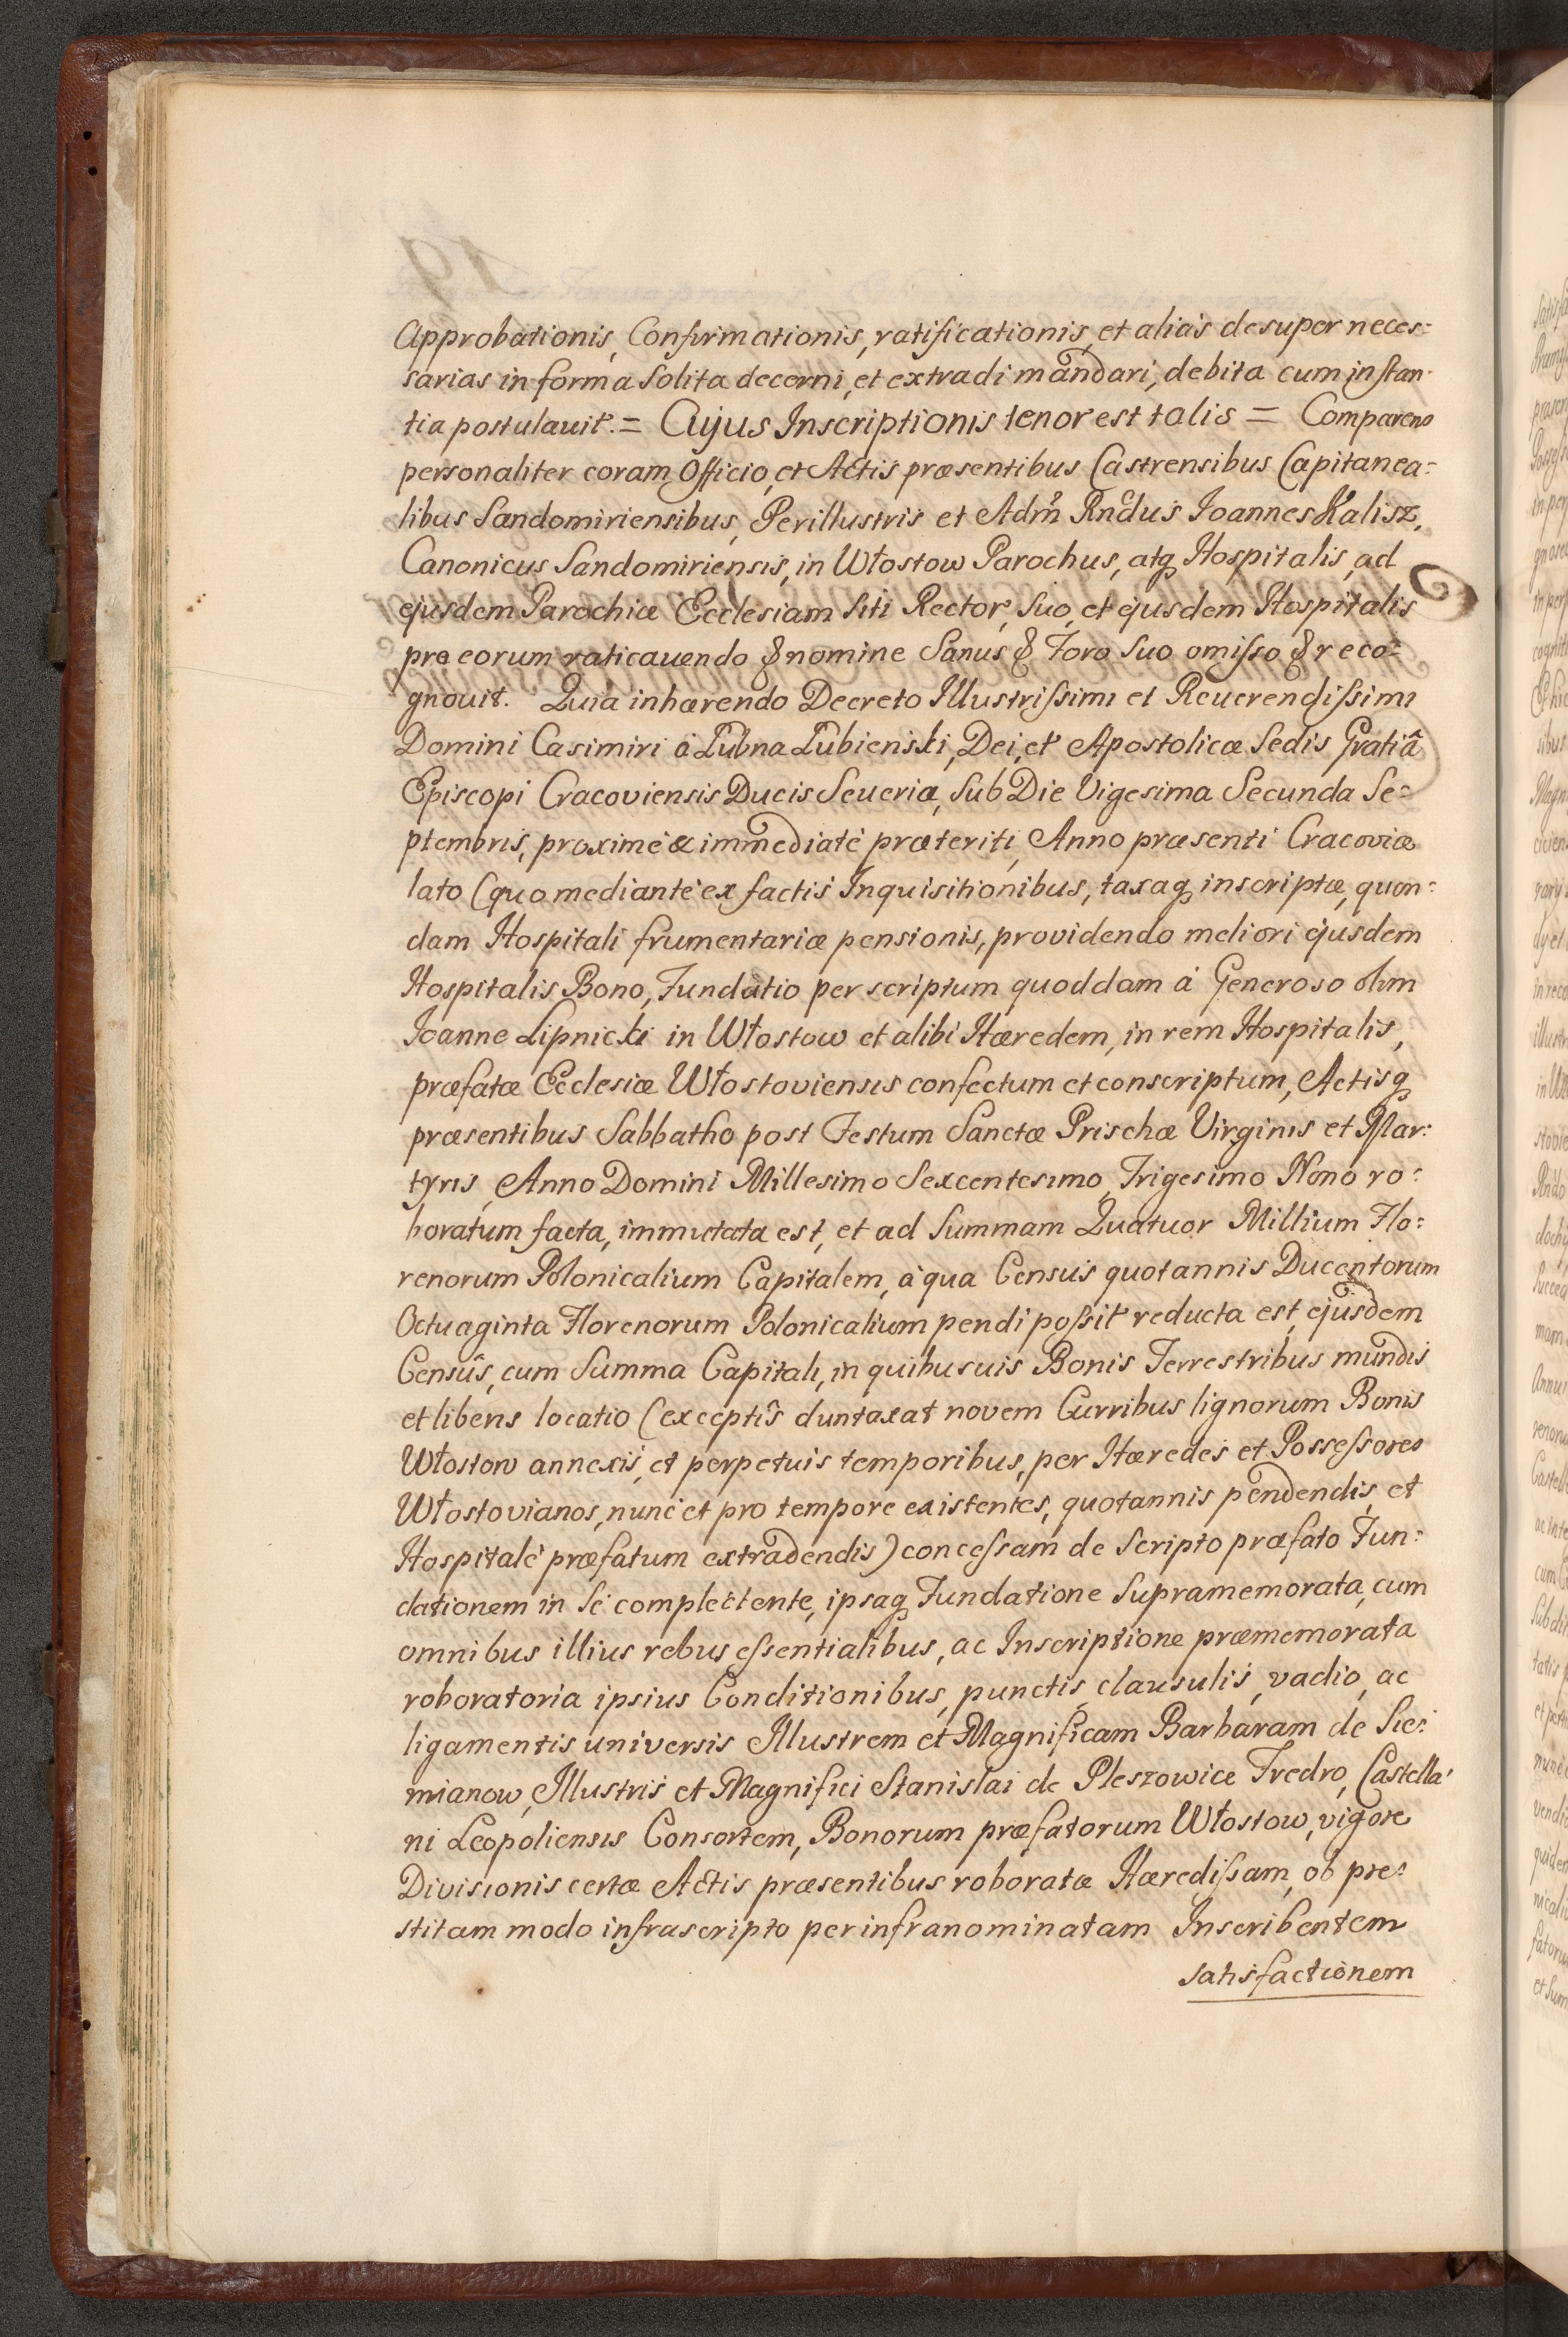 Approbationis, Confirmationis, ratificationis, et aliàs desuper neces:
sarias in forma solita decerni, et extradi mandari, debita cum instan:
tia postulauit. = Cujus Inscriptionis tenor est talis = Comparens
personaliter coram Officio, et Actis præsentibus Castrensibus Capitanea:
libus Sandomiriensibus, Perillustris et Adm̃ Rndus Joannes Kalisz,
Canonicus Sandomiriensis, in Włostow Parochus, atq Hospitalis, ad
ejusdem Parochiæ Ecclesiam Siti Rector, Suo, et ejusdem Hospitalis
pro eorum raticauendo & nomine Sanus & Foro Suo omisso & reco:
gnouit. Quia inhærendo Decreto Illustrissimi et Reuerendissimi
Domini Casimiri à Łubna Łubienski, Dei, et Apostolicæ Sedis Gratiâ
Episcopi Cracoviensis Ducis Seueriæ, Sub Die Vigesima Secunda Se:
ptembris, proximè & immediatè præteriti, Anno præsenti Cracoviæ
lato (quo mediante ex factis Inquisitionibus, taxaq inscriptæ, quon:
dam Hospitali frumentariæ pensionis, providendo meliori ejusdem
Hospitalis Bono, Fundatio per scriptum quoddam à Generoso olim
Joanne Lipnicki in Włostow et alibi Hæredem, in rem Hospitalis,
præfatæ Ecclesiæ Włostoviensis confectum et conscriptum, Actisq
præsentibus Sabbatho post Festum Sanctæ Prischæ Virginis et Mar:
tyris, Anno Domini Millesimo Sexcentesimo, Trigesimo Nono ro:
boratum facta, immutata est, et ad Summam Quatuor Millium Flo:
renorum Polonicalium Capitalem, à qua Census quotannis Ducentorum
Octuaginta Florenorum Polonicalium pendi possit reducta est, ejusdem
Censûs, cum Summa Capitali, in quibusuis Bonis Terrestribus mundis
et libens locatio (exceptis duntaxat novem Curribus lignorum Bonis
Włostow annexis, et perpetuis temporibus, per Hæredes et Possessores
Włostovianos, nunc et pro tempore existentes, quotannis pendendis, et
Hospitale præfatum extradendis) concessam de Scripto præfato Fun:
dationem in Se complectente, ipsaq Fundatione Supramemorata, cum
omnibus illius rebus essentialibus, ac Inscriptione præmemorata
roboratoria ipsius Conditionibus, punctis, clausulis, vadio, ac
ligamentis universis Illustrem et Magnificam Barbaram de Sie:
mianow, Illustris et Magnifici Stanislai de Pleszowice Fredro, Castella:
ni Leopoliensis Consortem, Bonorum præfatorum Włostow, vigore
Divisionis certæ Actis præsentibus roboratæ Hæredissam, ob pre:
stitam modo infrascripto per infranominatam Inscribentem
satisfactionem